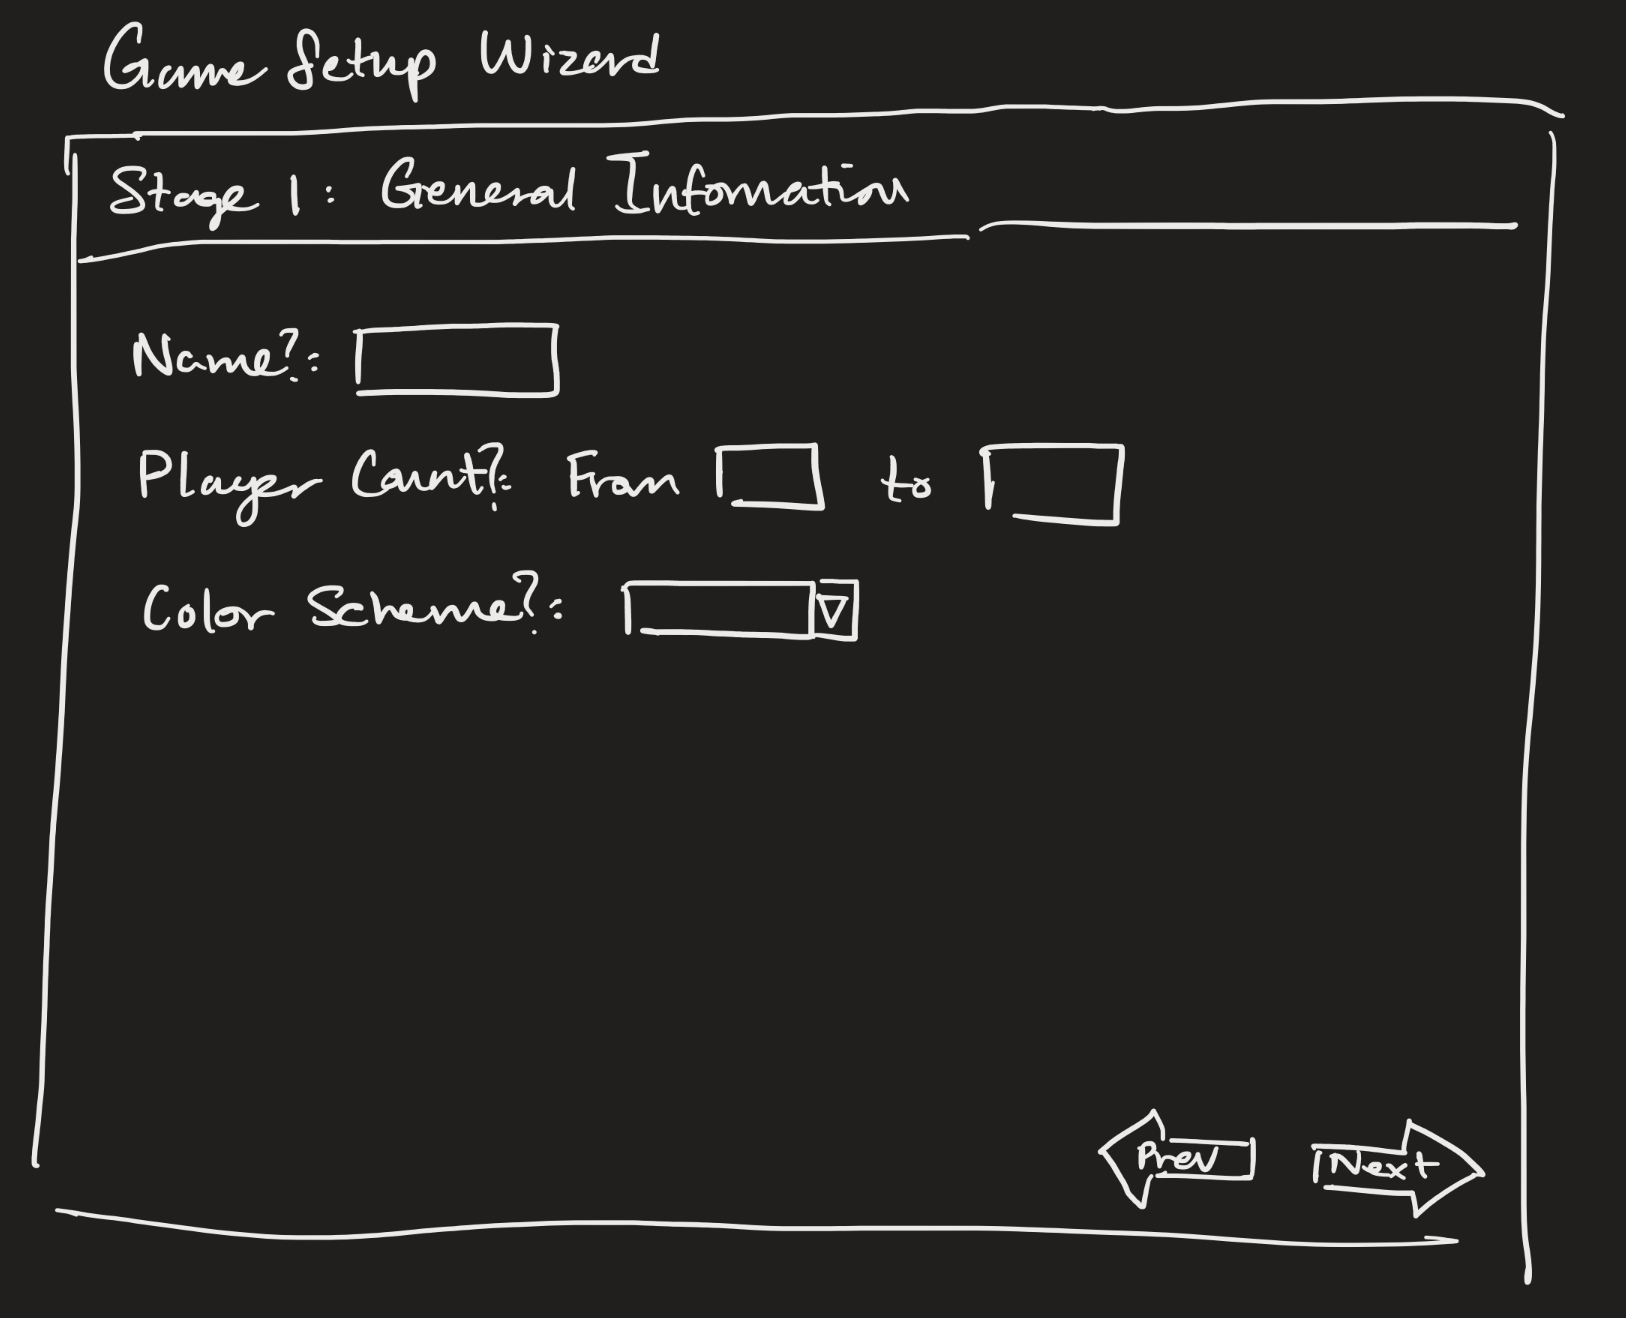 Game Setup Wizard
Stage 1: General Infomation
Name?:
Player Count?: From to
Color Scheme?:
Prev Next